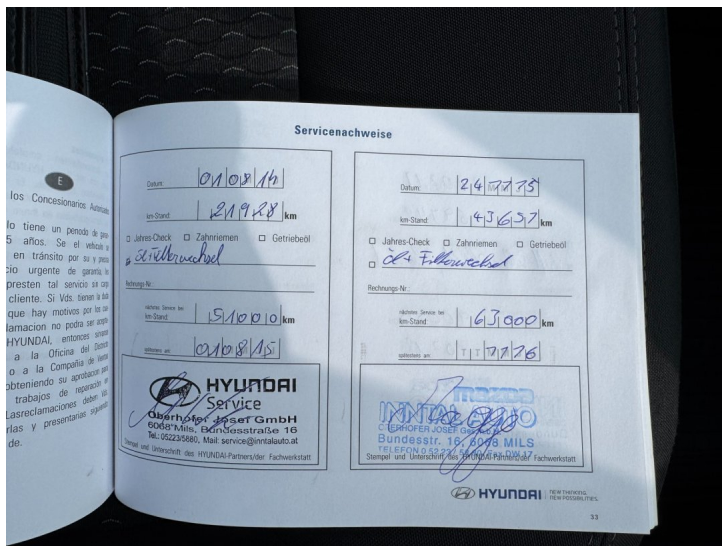 Servicenachweise
E
los Concesionarios
lo tiene un periodo de
5 años. Se el vehiculo
en tránsito por su y
cio urgente de garantia,
presten tal servicio sin
cliente. Si Vds. tienen la
que hay motivos por los
lamacion no podra ser
HYUNDAI, entonces
a la Oficina del
o a la Compañia de
obteniendo su aprobacion
trabajos de reparación
Lasreclamaciones deben
rlas y presentarlas
de.
Datum: 01 08 14
km-Stand 21928 km
Jahres-Check Zahnriemen Getriebeöl
Rechnungs-Nr.:
nächstes Service bei
km-Stand: 51000 km
spätestens am: 01 08 15
HYUNDAI
Service
Oberhofer Josef GmbH
6068 Mils, Bundesstraße 16
Tel.: 05223/5680, Mail: service@inntalauto.at
Stempel und Unterschrift des HYUNDAI-Partners/der Fachwerkstatt
Datum:
km-Stand: 43657 km
Jahres-Check Zahnriemen Getriebeöl
Öl + Filterwechsel
Rechnungs-Nr.:
nächstes Service bei
km-Stand: 63000 km
spätestens am:
mazda
INNTAL AUTO
OBERHOFER JOSEF
Bundesstr. 16, 6068 MILS
TELEFON 0 52 23
Stempel und Unterschrift des HYUNDAI-Partners/der Fachwerkstatt
HYUNDAI NEW THINKING.
NEW POSSIBILITIES.
33